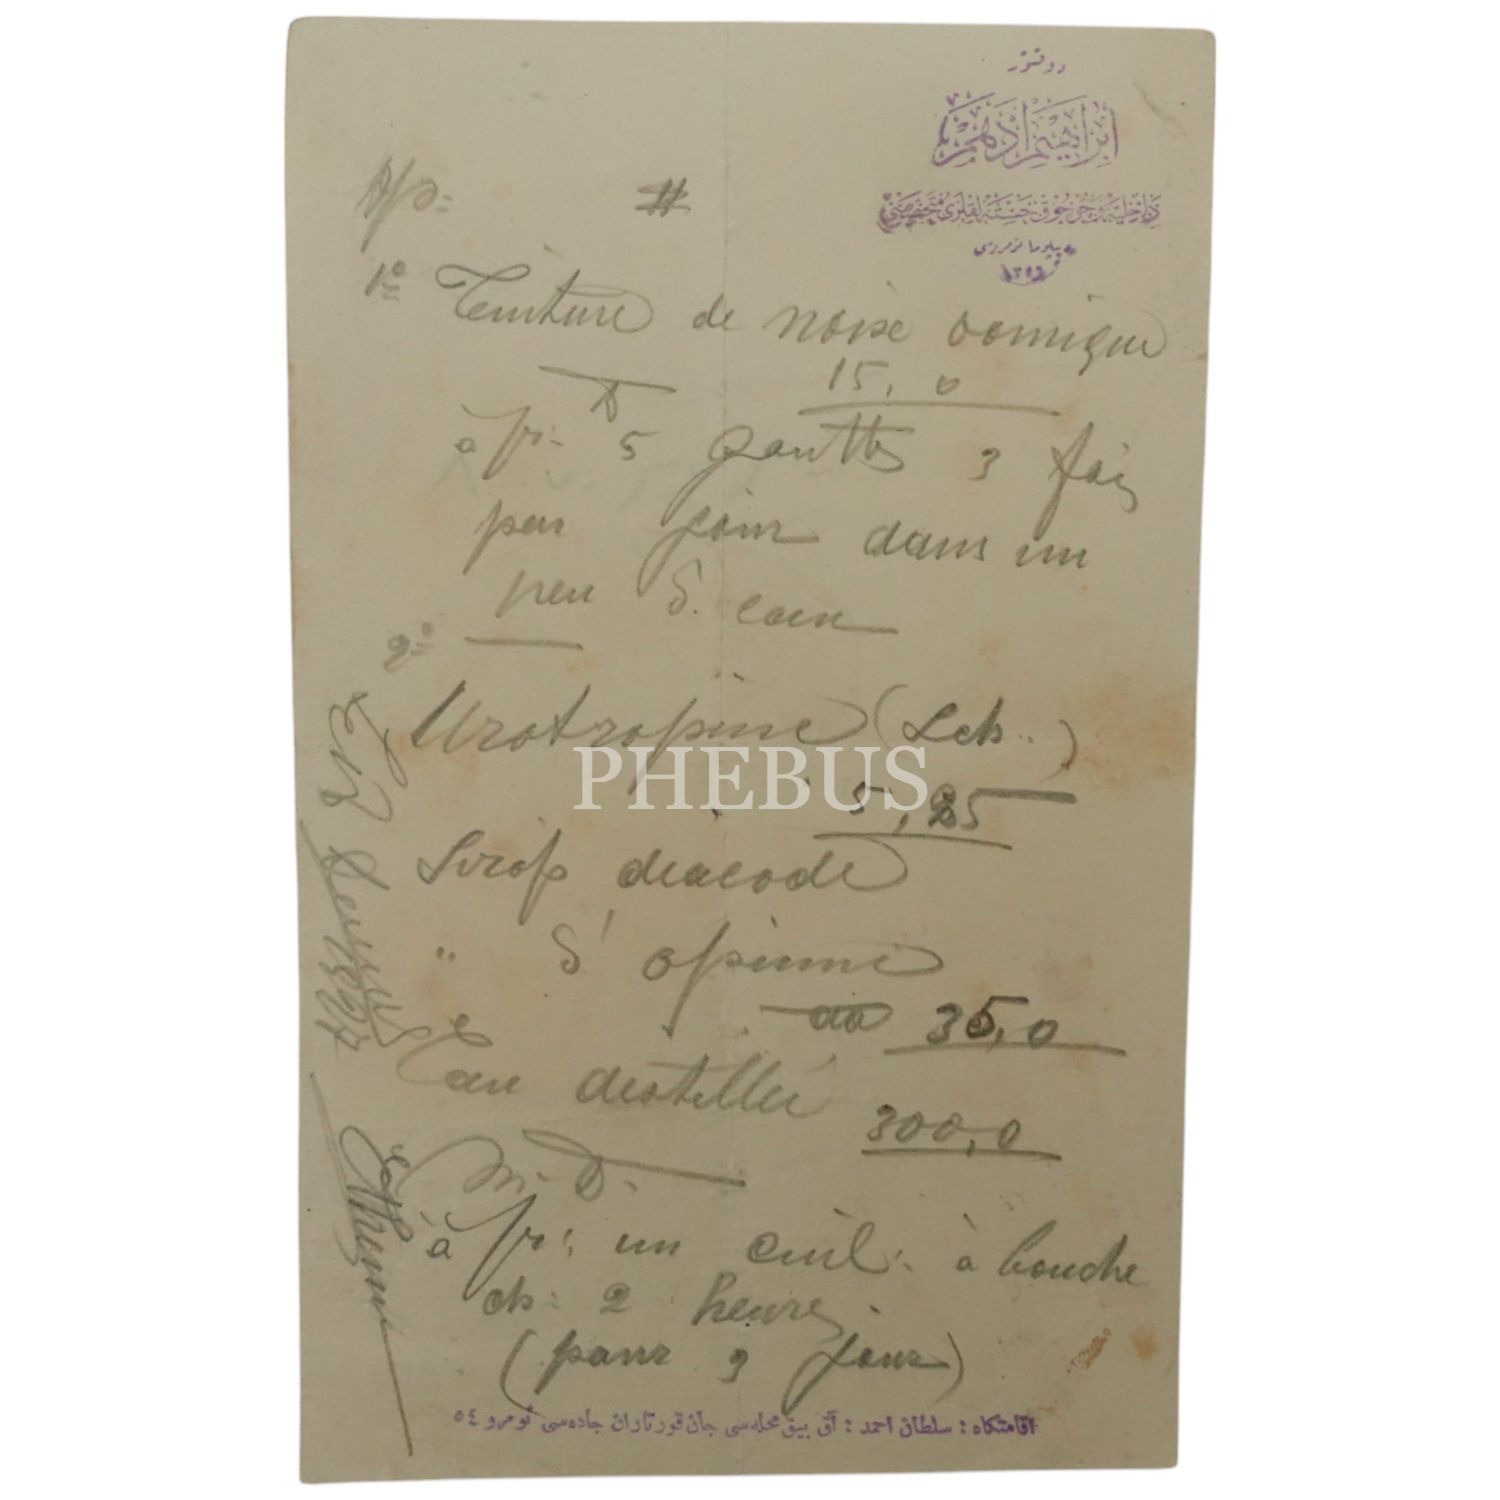 دوقتور
ابراهيم ادهم
داخليه و چوجوق خسته لقلرى متخصصى
ديپلوما نومروسى
Rp:
#
1º Teinture de noix vomique
15,0
D
à pr: 5 goutts 3 fois
par jour dans un
peu d. eau
2º
Urotropine (Sch..)
5,25
Sirop diacode
" d'opium
aa 35,0
Eau distillée
300,0
M. D.
à pr: un cuil: à bouche
ch: 2 heures
(pour 3 jours)
Ethem
اقامتكاه : سلطان احمد : آق بيق محله سى جان قورتاران جاده سى نومرو ٥٤
PHEBUS